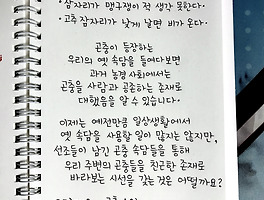 · 잠자리가 맹구쟁이 적 생각 못한다.
· 고추 잠자리가 낮게 날면 비가 온다.
곤충이 등장하는
우리의 옛 속담을 들여다보면
과거 농경 사회에서는
곤충을 사람과 공존하는 존재로
대했음을 알 수 있습니다.
이제는 예전만큼 일상생활에서
옛 속담을 사용할 일이 많지는 않지만,
선조들이 남긴 곤충 속담들을 통해
우리 주변의 곤충들을 친근한 존재로
바라보는 시선을 갖는 것은 어떨까요?